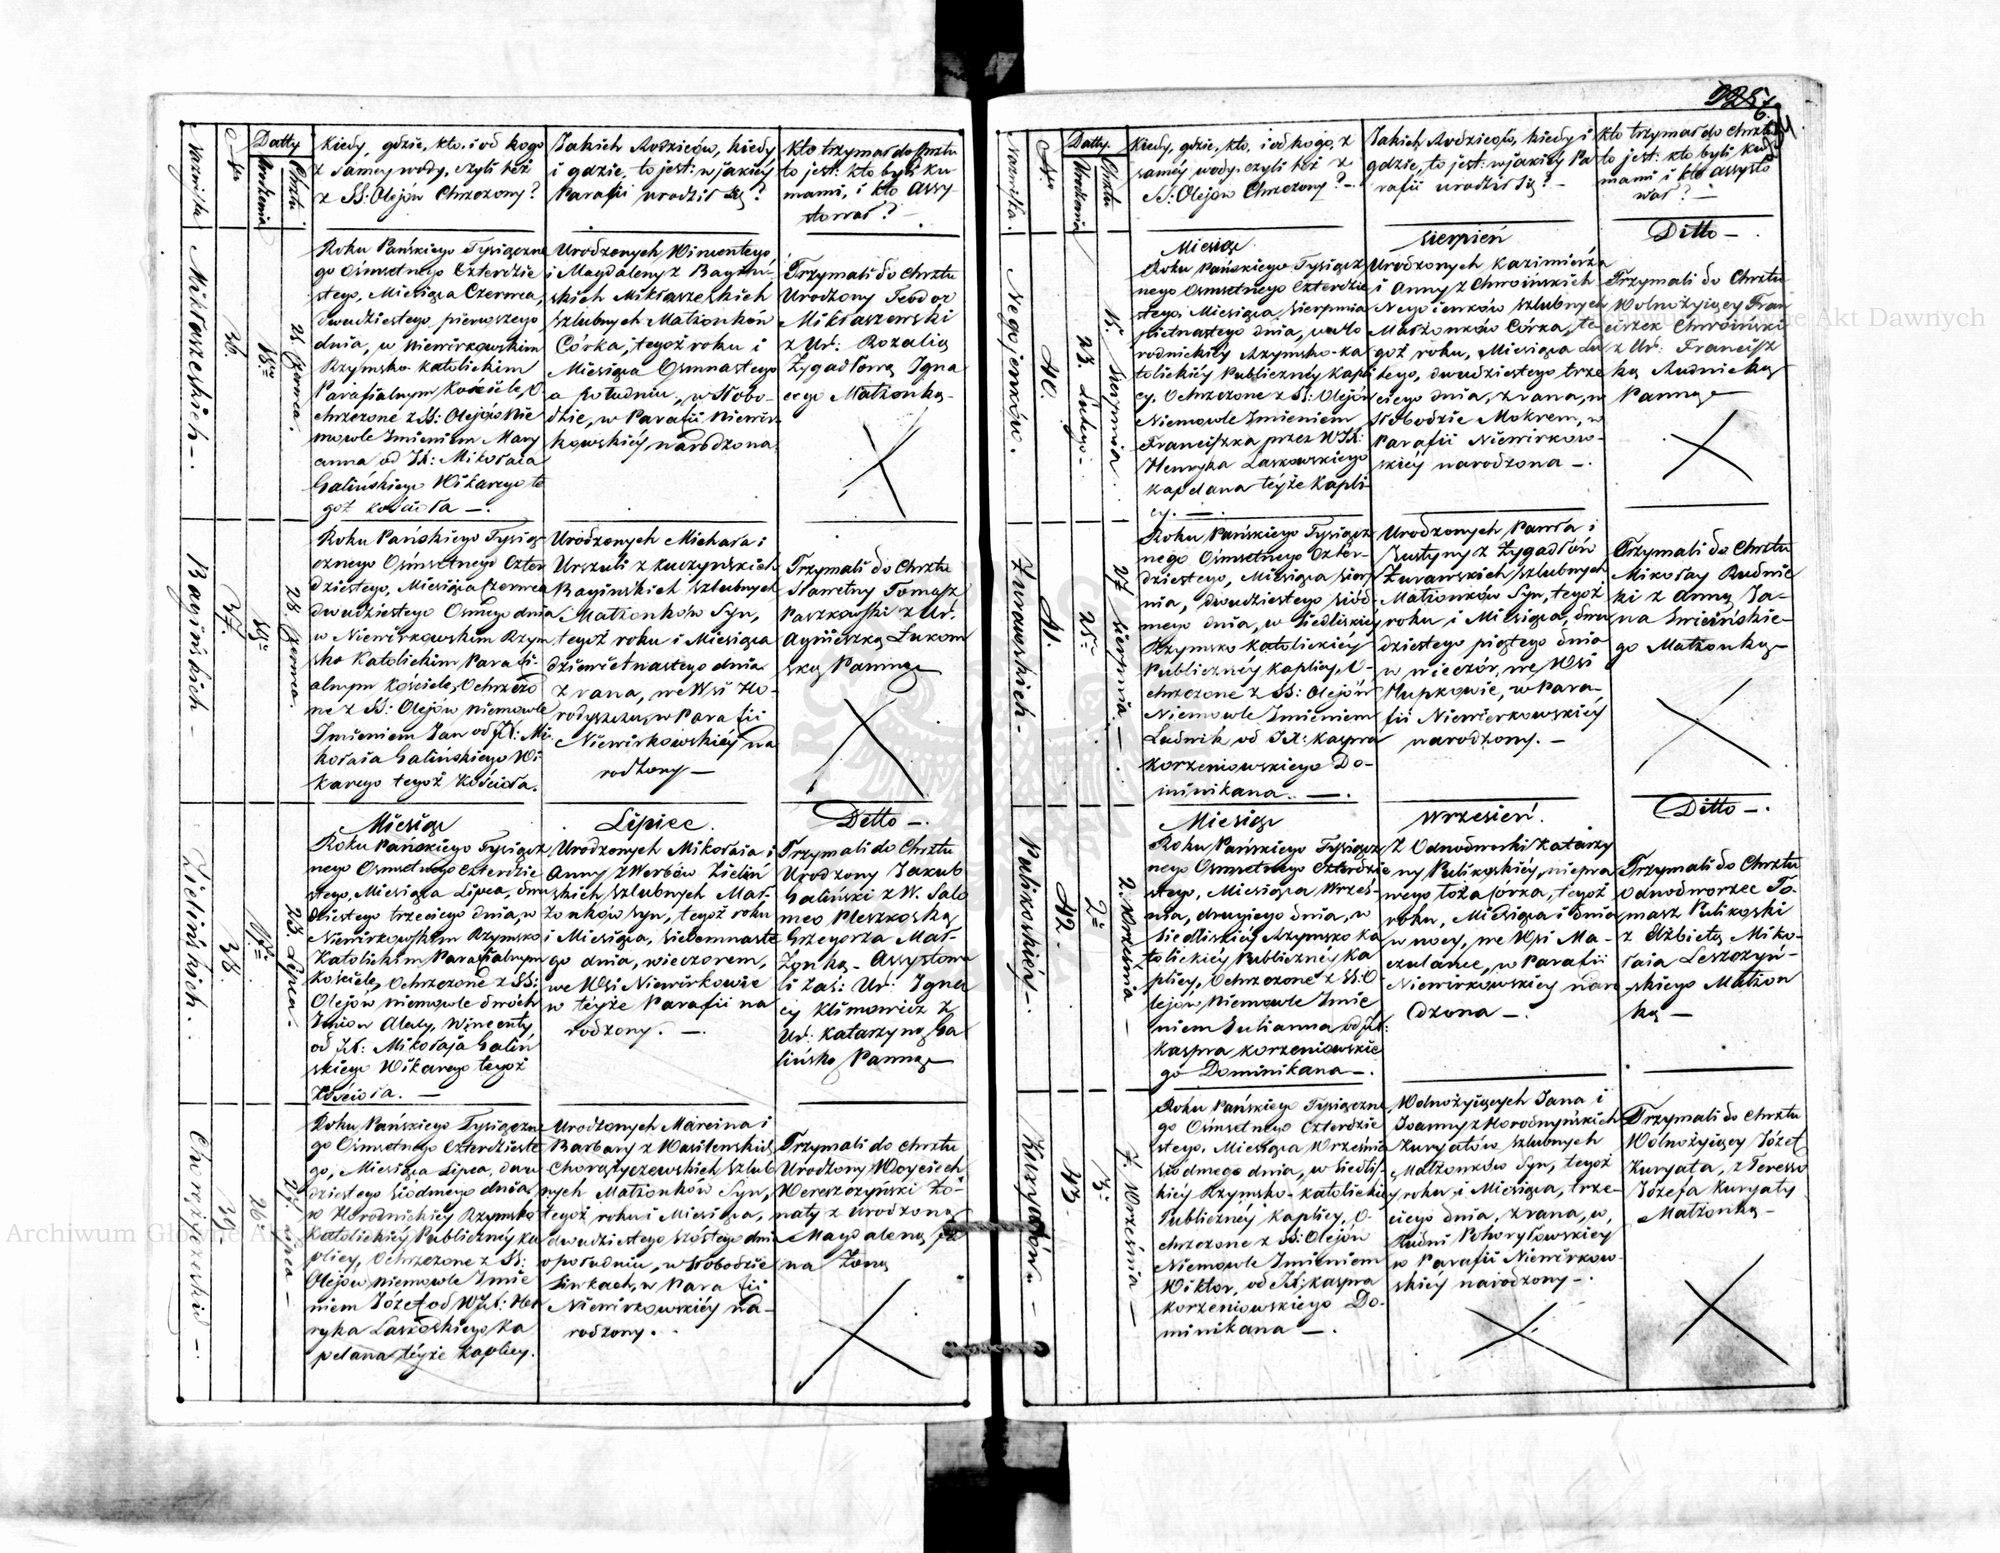 Nazwiska
No
Datty
Urodzenia
Chrztu
Kiedy, gdzie, kto, i od kogo
z samey wody, czyli też
z SS: Olejów Chrzczony?
Jakich Rodziców, kiedy
i gdzie, to jest: w jakiéy
Parafii urodził się?
Kto trzymał do Chrztu
to jest: kto byli ku
mami, i kto assy
stował?
Mikłaszeskich —.
36.
18go
21. Czerwca.
Roku Pańskiego Tysiączne
go Ośmsetnego Czterdzie
stego, Miesiąca Czerwca,
dwudziestego pierwszego
dnia, w Niewirkowskim
Rzymsko-katolickim
Parafialnym Kościele, O
chrzczone z SS: Olejów Nie
mowle Imieniem Mary
anna od JX: Mikołaia
Galińskiego Wikarego te
goż kościoła —.
Urodzonych Wincentego
i Magdaleny z Bagiń-
skich Mikłaszeskich
szlubnych Małżonków
Córka, tegoż roku i
Miesiąca Osmnastego
a południu, w Słobo-
dzie, w Parafii Niewir-
kowskiéy narodzona
Trzymali do Chrztu
Urodzony Teodor
Mikłaszewski
z Ur: Rozalią
Zygadłową Igna
cego Małżonką —
Bagińskich —
37.
19go
28. Czerwca.
Roku Pańskiego Tysią-
cznego Ośmsetnego Czter
dziestego, Miesiąca Czerwca
dwudziestego Osmego dnia
w Niewirkowskim Rzym
sko Katolickim Parafi-
alnym Kościele, Ochrzczo
ne z SS: Olejów niemowle
Imieniem Jan od JX: Mi
kołaia Galińskiego Wi-
karego tegoż Kościoła.
Urodzonych Michała i
Urszuli z Kuczyńskich
Bagińskich szlubnych
Małżonków Syn,
tegoż roku i Miesiąca
dziewietnastego dnia
z rana, we Wsi Ho-
rodyszczu, w Parafii
Niewirkowskiéy na
rodzony —
Trzymali do Chrztu
Sławetny Tomasz
Paszkowski z Ur:
Agnieszką Łukom
ską Panną
Zielińskich.
38.
17go
23. Lipca.
Miesiąc
Roku Pańskiego Tysiącz
nego Ośmsetnego Czterdzie
stego, Miesiąca Lipca, dwu
dziestego trzeciego dnia, w
Niewirkowskim Rzymsko
Katolickim Parafialnym
Kościele, Ochrzczone z SS:
Olejów niemowle dwóch
Imion Wincenty,
od JX: Mikołaja Galiń
skiego Wikarego tegoż
Kościoła. —
Lipiec.
Urodzonych Mikołaia i
Anny z Werbów Zieliń
skich szlubnych Mał-
żonków syn, tegoż roku
i Miesiąca, siedemnaste
go dnia, wieczorem,
we Wsi Niewirkowie
w teyże Parafii na
rodzony. —.
Ditto —.
Trzymali do Chrztu
Urodzony Jakub
Galiński z W. Salo
meą Pleszkoską
Grzegorza Mał-
żonką. Assystowa
li zaś: Ur: Igna
cy Klimowicz z
Ur: Katarzyną Ga
lińską Panną
39.
26go
27. Lipca —
Roku Pańskiego Tysiączne
go Ośmsetnego Czterdzieste
go, Miesiąca Lipca, dwu
dziestego siódmego dnia,
w Horodnickiéy Rzymsko
Katolickiéy Publicznéy ka
plicy, Ochrzczone z SS:
Olejów niemowle Imie
niem Józef od WJX: Hen
ryka Laskoskiego Ka
pelana téyże kaplicy.
Urodzonych Marcina i
Barbary z Wasilewskich
szlub
nych Małżonków Syn,
tegoż roku i Miesiąca,
dwudziestego szóstego dnia
opołudniu, w Słobodzie
Sinkach, w Parafii
Niewirkowskiéy na-
rodzony.
Trzymali do chrztu
Urodzony Woyciech
Wereszczyński Żo-
naty z Urodzoną
Magdaleną
na Żoną
Nazwiska.
No
Datty.
Urodzenia
Chrztu
Kiedy, gdzie, kto, i od kogo, z
saméy wody, czyli też z
SS: Olejów Chrzczony? —
Jakich Rodziców, kiedy i
gdzie, to jest: w jakiéy Pa
rafii urodził się? —
Kto trzymał do Chrztu
to jest: kto byli ku
mami i kto assysto
wał? —
Negojenków.
40.
23. Lutego.
15. Sierpnia
Miesiąc
Roku Pańskiego Tysiącz
nego Osmsetnego Czterdzie
stego, Miesiąca, Sierpnia
pietnastego dnia, w Ho
rodnickiéy Rzymsko-ka
tolickiéy Publicznéy Kapli
cy, Ochrzczone z SS: Olejów
Niemowle Imieniem
Franciszka przez WJX:
Henryka Laskowskiego
Kapelana teyże Kapli
cy. —.
Sierpień
Urodzonych Kazimierza
i Anny z Chwoińskich
Negojenków szlubnych
Małżonków Córka, te
goż roku, Miesiąca Lu
tego, dwudziestego trze
ciego dnia, z rana, w
Słobodzie Mokrem, w
Parafii Niewirkow-
skiéy narodzona —.
Ditto —
Trzymali do Chrztu
Wolnożyjący Fran
ciszek Chwoiński
z Ur: Francisz
ką Rudnicką
Panną
Żurawskich —
41.
25.
27 Sierpnia —
Roku Pańskiego Tysiącz
nego Ośmsetnego Czter-
dziestego, Miesiąca Sierp
nia, dwudziestego siód-
mego dnia, w Siedliskiey
Rzymsko Katolickiéy
Publicznéy Kaplicy, O-
chrzczone z SS: Olejów
Niemowle Imieniem
Ludwik od JX: Kaspra
Korzeniowskiego Do-
minikana. —.
Urodzonych Pawła i
Justyny z Zygadłów
Żurawskich szlubnych
Małżonków Syn, tegoż
roku i Miesiąca, dwu
dziestego piątego dnia
w wieczór, we Wsi
Hupkowie, w Para-
fii Niewirkowskiéy
narodzony. —
Trzymali do Chrztu
Mikołay Rudnic
ki z Anną Ja-
na
go Małżonką —
Pulikoskiéy —
42.
2go
2. Września —
Miesiąc
Roku Pańskiego Tysiącz
nego Ośmsetnego Czterdzie
stego, Miesiąca Wrześ-
nia, drugiego dnia, w
Siedliskiéy Rzymsko Ka
tolickiéy Publicznéy Ka
plicy, Ochrzczone z SS: O
lejów Niemowle Imie
niem Julianna od JX:
Kaspra Korzeniowskie
go Dominikana —.
Wrzesień.
Z Odnodworki Katarzy
ny Pulikoskiéy, niepra
wego łoża Córka, tegoż
roku, Miesiąca i dnia
w nocy, we Wsi Ma-
czulance, w Parafii
Niewirkowskiey naro
dzona —.
Ditto —.
Trzymali do Chrztu
Odnodworzec To-
masz Pulikoski
z Elżbietą Miko-
łaia Leszczyń-
skiego Małżon
ką —
Kuryatów —
43.
3.
7. Września —
Roku Pańskiego Tysiączne
go Ośmsetnego Czterdzie
stego, Miesiąca Września
siódmego dnia, w Siedlis-
kiéy Rzymsko-katolickiéy
Publicznéy Kaplicy, O-
chrzczone z SS: Olejów
Niemowle Imieniem
Wiktor, od JX: Kaspra
Korzeniowskiego Do-
minikana —.
Wolnożyjących Jana i
Joanny z Horodnyńskich
Kuryatów szlubnych
Małżonków Syn, tegoż
roku i Miesiąca, trze-
ciego dnia, z rana, w
Rudni Pohoryłowskiéy
w Parafii Niewirkow-
skiéy narodzony —.
Trzymali do Chrztu
Wolnożyjący Józef
Kuryata, z Teressą
Józefa Kuryaty
Małżonką —
Archiwum Główne Akt Dawnych
Archiwum Główne Akt Dawnych